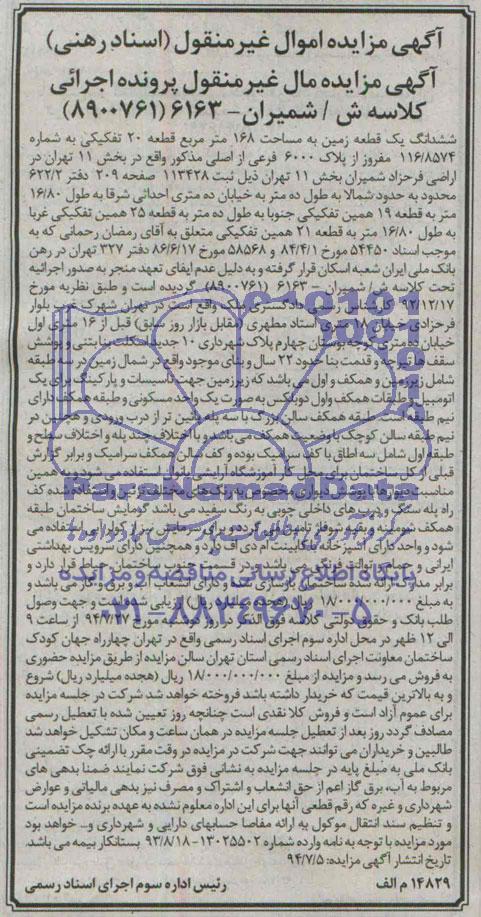 آگهی مزایده اموال غیر منقول (اسناد رهنی)
آگهی مزایده مال غیر منقول پرونده اجرائی
کلاسه ش / شمیران- ۶۱۶۳ (۸۹۰۰۷۶۱)
ششدانگ یک قطعه زمین به مساحت ۱۶۸ متر مربع قطعه ۲۰ تفکیکی به شماره
۱۱۶/۸۵۷۴ مفروز از پلاک ۶۰۰۰ فرعی از اصلی مذکور واقع در بخش ۱۱ تهران در
اراضی فرحزاد شمیران بخش ۱۱ تهران ذیل ثبت ۱۱۳۴۲۸ صفحه ۲۰۹ دفتر ۶۲۲/۲
محدود به حدود شمالا به طول ده متر به خیابان ده متری احداثی شرقا به طول ۱۶/۸۰
متر به قطعه ۱۹ همین تفکیکی جنوبا به طول ده متر به قطعه ۲۵ همین تفکیکی غربا
به طول ۱۶/۸۰ متر به قطعه ۲۱ همین تفکیکی متعلق به آقای رمضان رحمانی که به
موجب اسناد ۵۴۴۵۰ مورخ ۸۴/۴/۱ و ۵۸۵۶۸ مورخ ۸۶/۶/۱۷ دفتر ۳۲۷ تهران در رهن
بانک ملی ایران شعبه اسکان قرار گرفته و به دلیل عدم ایفای تعهد منجر به صدور اجرائیه
تحت کلاسه ش/ شمیران - ۶۱۶۳ (۸۹۰۰۷۶۱) گردیده است و طبق نظریه مورخ
۹۲/۱۲/۱۷ کارشناس رسمی دادگستری ملک واقع است در تهران شهرک غرب بلوار
فرحزادی خیابان ۱۸ متری استاد مطهری (مقابل بازار روز سابق) قبل از ۱۶ متری اول
خیابان ده متری کوچه بوستان چهارم پلاک شهرداری ۱۰ جدید اسکلت بنا بتنی و پوشش
سقف ها تیرچه و قدمت بنا حدود ۲۲ سال و بنای موجود واقع در شمال زمین در سه طبقه
شامل زیرزمین و همکف و اول می باشد که زیرزمین جهت تاسیسات و پارکینگ برای یک
اتومبیل و طبقات همکف واول دوبلکس به صورت یک واحد مسکونی و طبقه همکف دارای
نیم طبقه است. طبقه همکف سالن بزرگ با سه پله پائین تر از درب ورودی و همچنین در
نیم طبقه سالن کوچک با وضعیت همکف می باشد و با اختلاف چند پله و اختلاف سطح و
طبقه اول شامل سه اطاق با کف سرامیک بوده و کف سالن همکف سرامیک و برابر گزارش
قبلی از کل ساختمان برای محل کار آموزشگاه آرایشی زنانه استفاده می شود و به همین
مناسبت دیوارها با پوشش دیواری مخصوص به رنگ های مختلف تزئین و استفاده شده کف
راه پله سنگ و درب های داخلی چوبی به رنگ سفید می باشد گرمایش ساختمان طبقه
همکف شومینه و بقیه شوفاژ تامین می گردد و برای سرمایش نیز از کولر آبی استفاده می
شود و واحد دارای آشپزخانه با کابینت ام دی اف دارد و همچنین دارای سرویس بهداشتی
ایرانی و حمام و توالت فرنگی می باشد. در قسمت جنوب ساختمان حیاط قرار دارد و
برابر مدارک ارائه شده ساختمان بازسازی شده و دارای انشعاب آب و برق و گاز می باشد و
به مبلغ ۱۸/۰۰۰/۰۰۰/۰۰۰ ریال (هجده میلیارد ریال) ارزیابی شده است و جهت وصول
طلب بانک و حقوق دولتی کلاسه فوق الذکر در روز شنبه مورخ ۹۴/۷/۲۵ از ساعت ۹
الی ۱۲ ظهر در محل اداره سوم اجرای اسناد رسمی واقع در تهران چهارراه جهان کودک
ساختمان معاونت اجرای اسناد رسمی استان تهران سالن مزایده از طریق مزایده حضوری
به فروش می رسد و مزایده از مبلغ ۱۸/۰۰۰/۰۰۰/۰۰۰ ریال (هجده میلیارد ریال) شروع
و به بالاترین قیمت که خریدار داشته باشد فروخته خواهد شد شرکت در جلسه مزایده
برای عموم آزاد است و فروش کلا نقدی است چنانچه روز تعیین شده با تعطیل رسمی
مصادف گردد روز بعد از تعطیل جلسه مزایده در همان ساعت و مکان تشکیل خواهد شد
طالبین و خریداران می توانند جهت شرکت در مزایده در وقت مقرر با ارائه چک تضمینی
بانک ملی به مبلغ پایه در جلسه مزایده به نشانی فوق شرکت نمایند ضمنا بدهی های
مربوط به آب، برق گاز اعم از حق انشعاب و اشتراک و مصرف نیز بدهی مالیاتی و عوارض
شهرداری و غیره که رقم قطعی آنها برای این اداره معلوم نشده به عهده برنده مزایده است
و تنظیم سند انتقال موکول به ارائه مفاصا حسابهای دارایی و شهرداری و... خواهد بود
مورد مزایده با توجه به نامه وارده شماره ۱۳۰۲۵۵۰۲- ۹۳/۸/۱۸ بستانکار بیمه می باشد.
تاریخ انتشار آگهی مزایده: ۹۴/۷/۵
۱۴۸۲۹ م الف رئیس اداره سوم اجرای اسناد رسمی
پایگاه اطلاع رسانی مناقصه و مزایده
۰۲۱-۸۸۳۴۹۶۷۰-۵